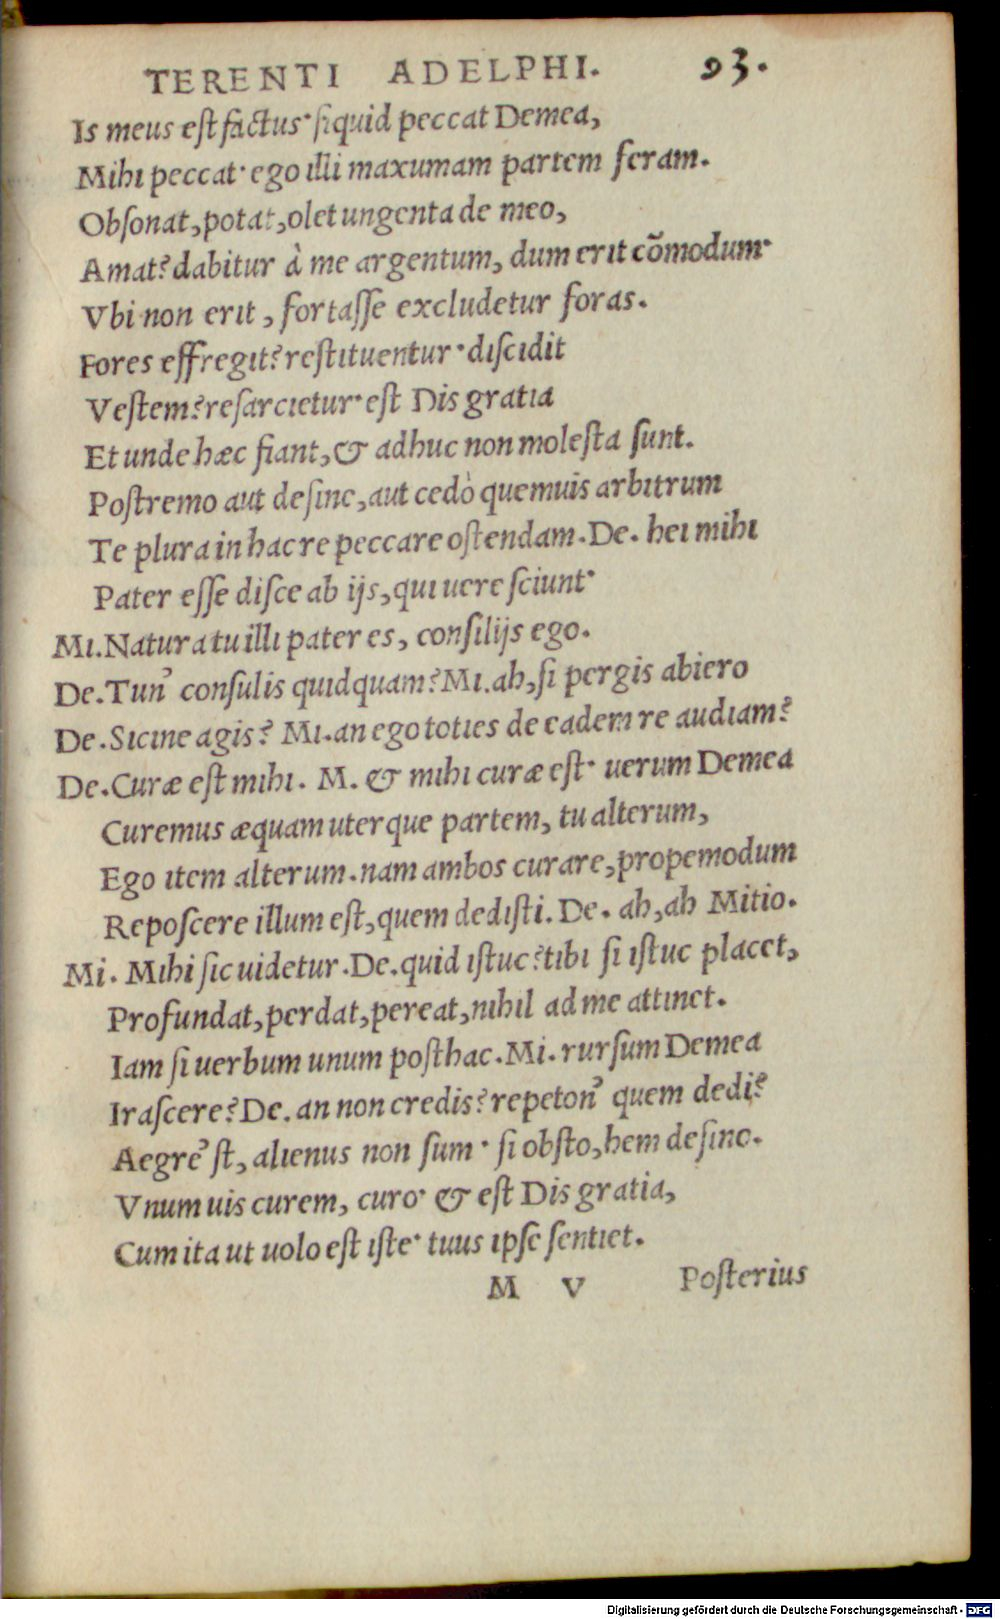 TERENTI ADELPHI. 93.
Is meus est factus· siquid peccat Demea,
Mihi peccat· ego illi maxumam partem feram.
Obsonat, potat, olet ungenta de meo,
Amat? dabitur à me argentum, dum erit cõmodum·
Vbi non erit, fortasse excludetur foras.
Fores effregit? restituentur· discidit
Vestem? resarcietur· est Dis gratia
Et unde hæc fiant, & adhuc non molesta sunt.
Postremo aut desine, aut cedò quemuis arbitrum
Te plura in hac re peccare ostendam. De. hei mihi
Pater esse disce ab ijs, qui uere sciunt·
Mi. Natura tu illi pater es, consilijs ego.
De. Tun' consulis quidquam? Mi. ah, si pergis abiero
De. Sicine agis? Mi. an ego toties de eadem re audiam?
De. Curæ est mihi. M. & mihi curæ est· uerum Demea
Curemus æquam uterque partem, tu alterum,
Ego item alterum. nam ambos curare, propemodum
Reposcere illum est, quem dedisti. De. ah, ah Mitio.
Mi. Mihi sic uidetur. De. quid istuc? tibi si istuc placet,
Profundat, perdat, pereat, nihil ad me attinet.
Iam si uerbum unum posthac. Mi. rursum Demea
Irascere? De. an non credis? repeton' quem dedi?
Aegre' st, alienus non sum· si obsto, hem desino.
Vnum uis curem, curo· & est Dis gratia,
Cum ita ut uolo est iste· tuus ipse sentiet.
M V Posterius
Digitalisierung gefördert durch die Deutsche Forschungsgemeinschaft - DFG